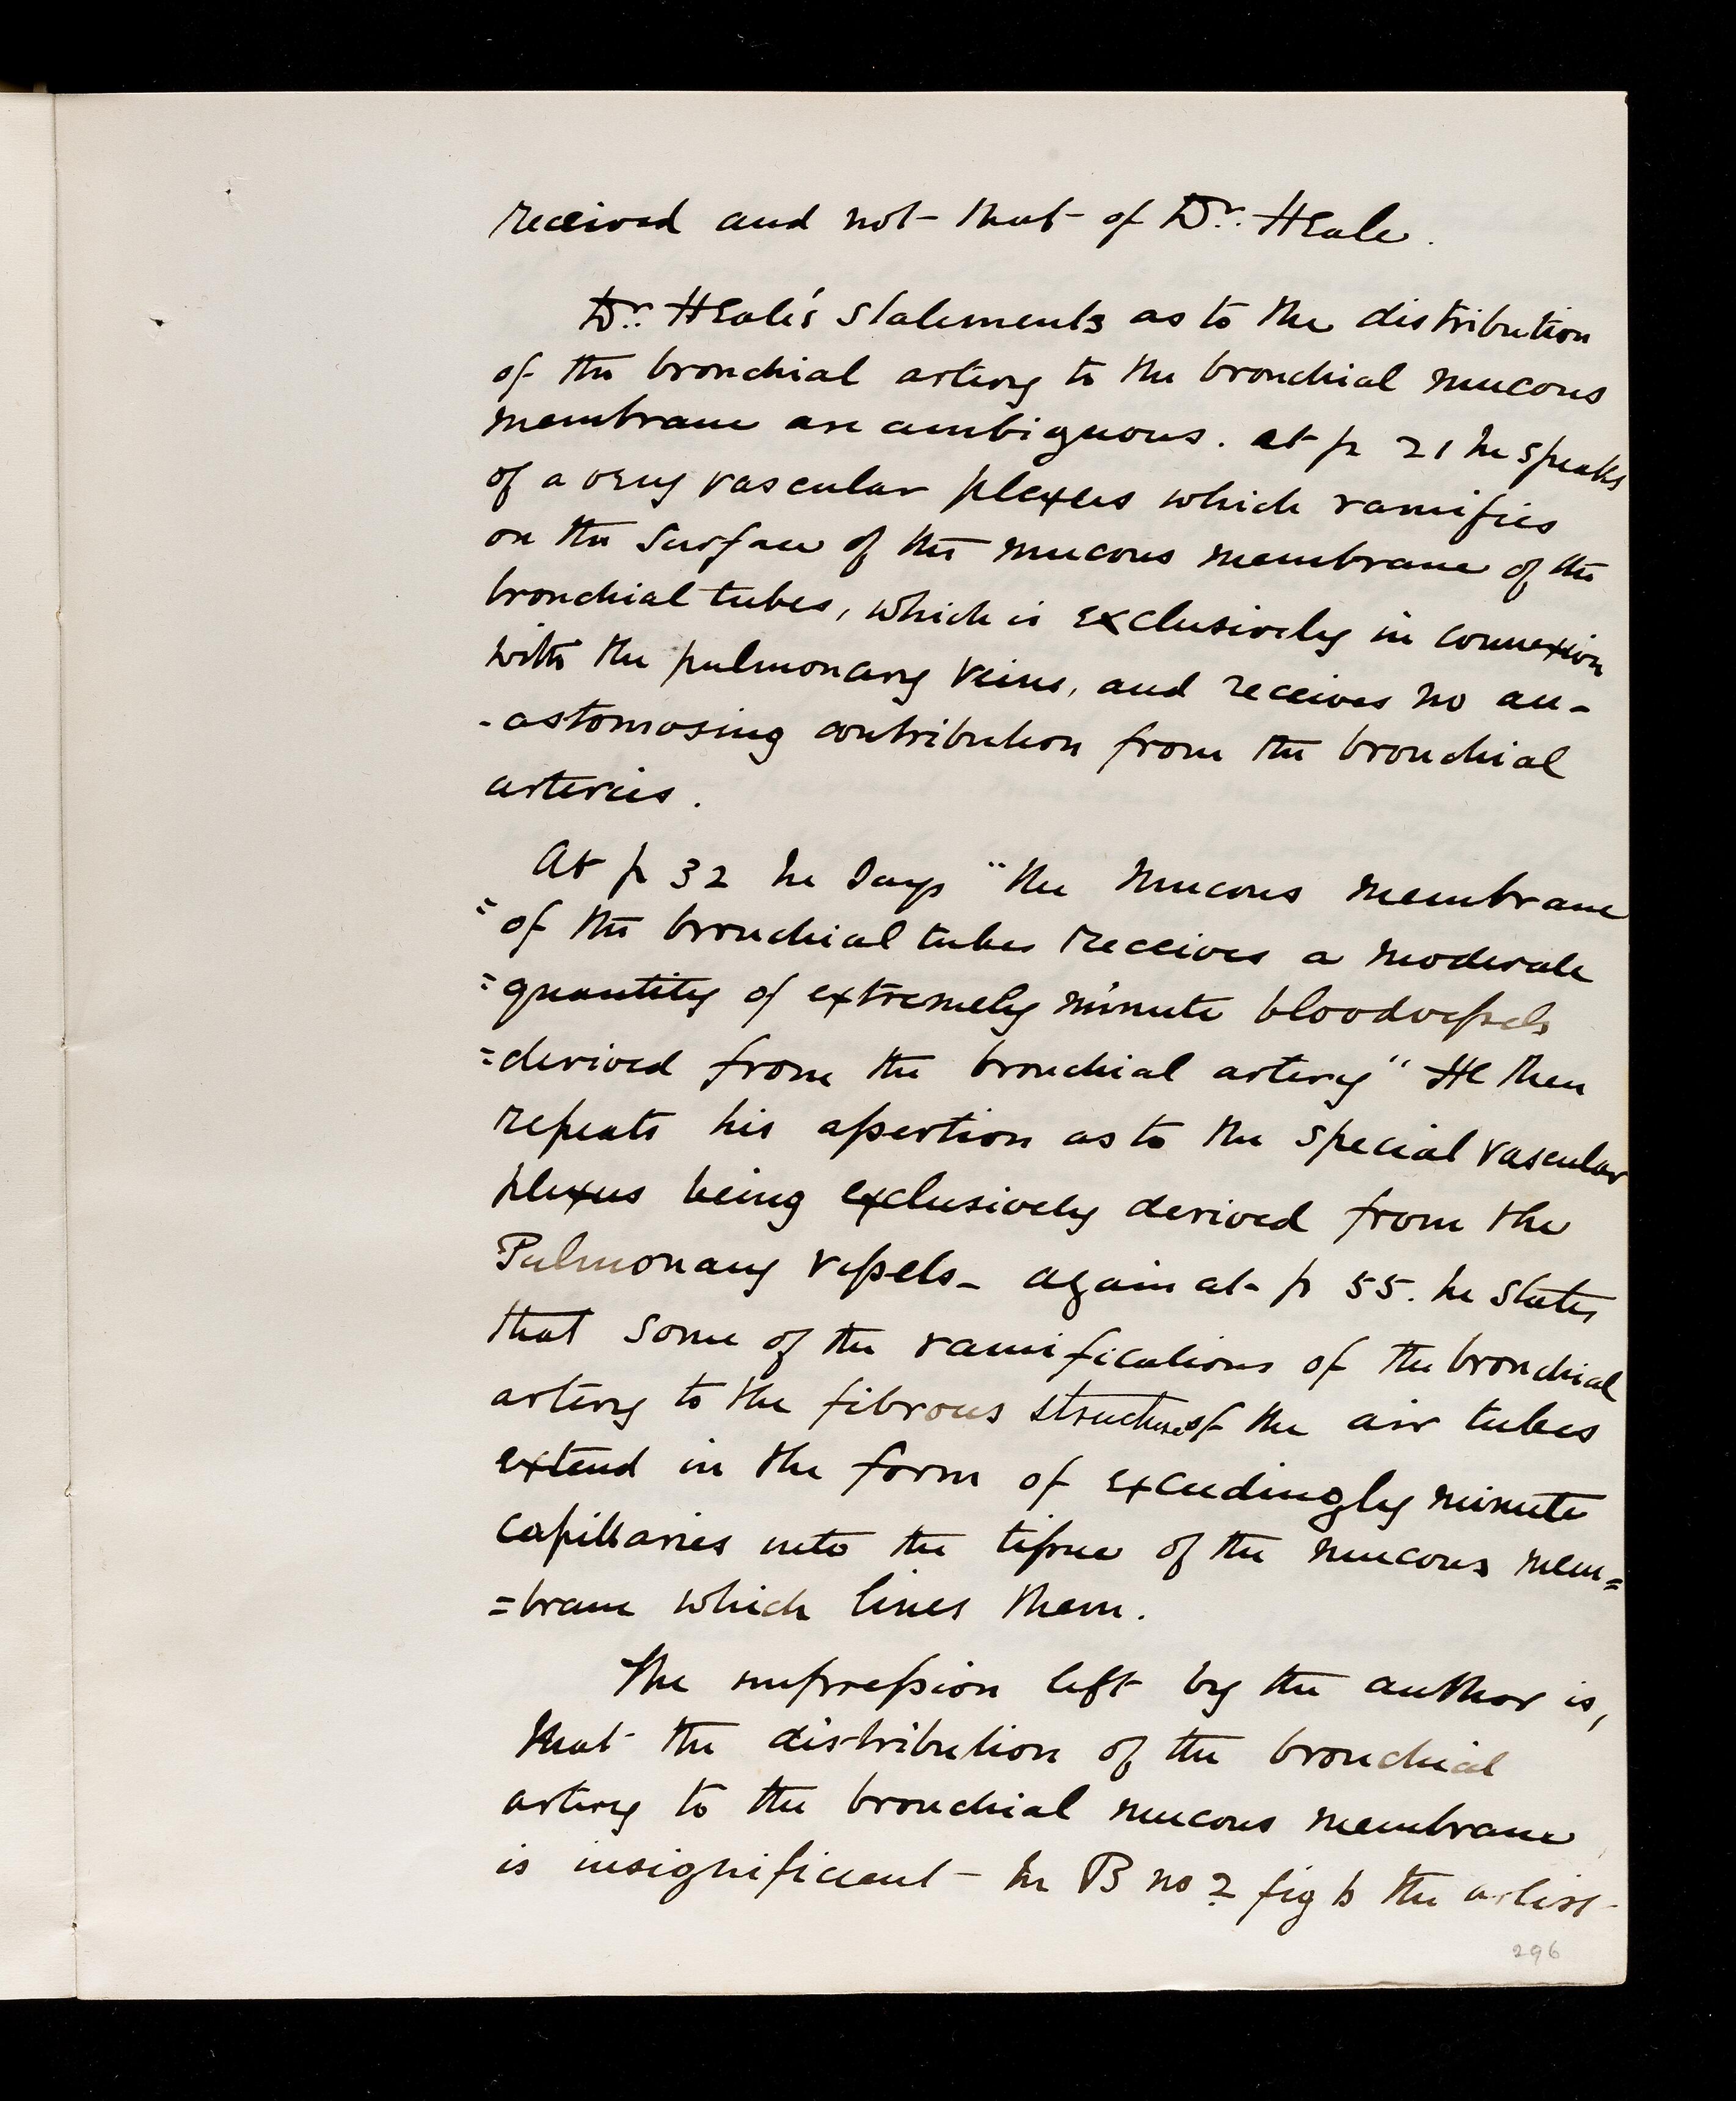 received and not that of Dr. Heale.
Dr. Heale's statements as to the distribution
of the bronchial artery to the bronchial mucous
membrane are ambiguous. at p 21 he speaks
of a very vascular plexus which ramifies
on the surface of the mucous membrane of the
bronchial tubes, which is exclusively in connexion
with the pulmonary veins, and receives no an-
-astomosing contribution from the bronchial
arteries.
At p 32 he says "the mucous membrane
"of the bronchial tubes receives a moderate
"quantity of extremely minute bloodvessels
"derived from the bronchial artery" He then
repeats his assertion as to the special vascular
plexus being exclusively derived from the
Pulmonary vessels - again at p 55. he states
that some of the ramifications of the bronchial
artery to the fibrous structure of the air tubes
extend in the form of exceedingly minute
capillaries into the tissue of the mucous mem=
=brane which lines them.
The impression left by the author is,
that the distribution of the bronchial
artery to the bronchial mucous membrane
is insignificant - In B no 2 fig b the artist
296